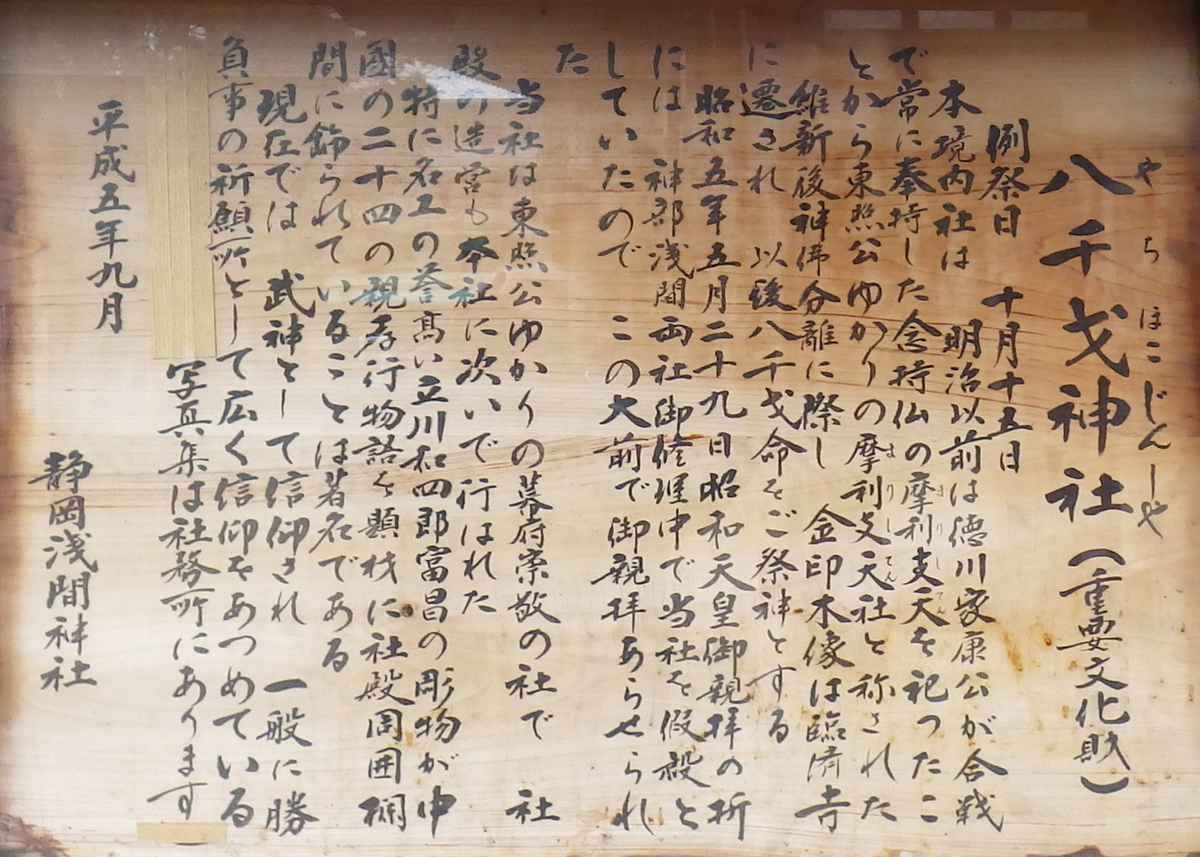 八千戈神社（重要文化財）
やちほこじんしや
例祭日　十月十五日
本境内社は　明治以前は徳川家康公が合戦
で常に奉持した念持仏の摩利支天を祀ったこ
まりしてん
とから東照公ゆかりの摩利支天社と称された
まりしてん
維新後神佛分離に際し　金印木像は臨済寺
に遷され　以後八千戈命をご祭神とする
昭和五年五月二十九日昭和天皇御親拝の折
には　神部浅間両社御修理中で当社を假殿と
していたので　この大前で御親拝あらせられ
た
当社は東照公ゆかりの幕府崇敬の社で　社
殿の造営も本社に次いで行はれた
特に名工の誉高い立川和四郎富昌の彫物が中
國の二十四の親孝行物語を題材に社殿周囲欄
間に飾られていることは著名である
現在では　武神として信仰され　一般に勝
負事の祈願所として広く信仰をあつめている
写真集は社務所にあります
平成五年九月
静岡浅間神社